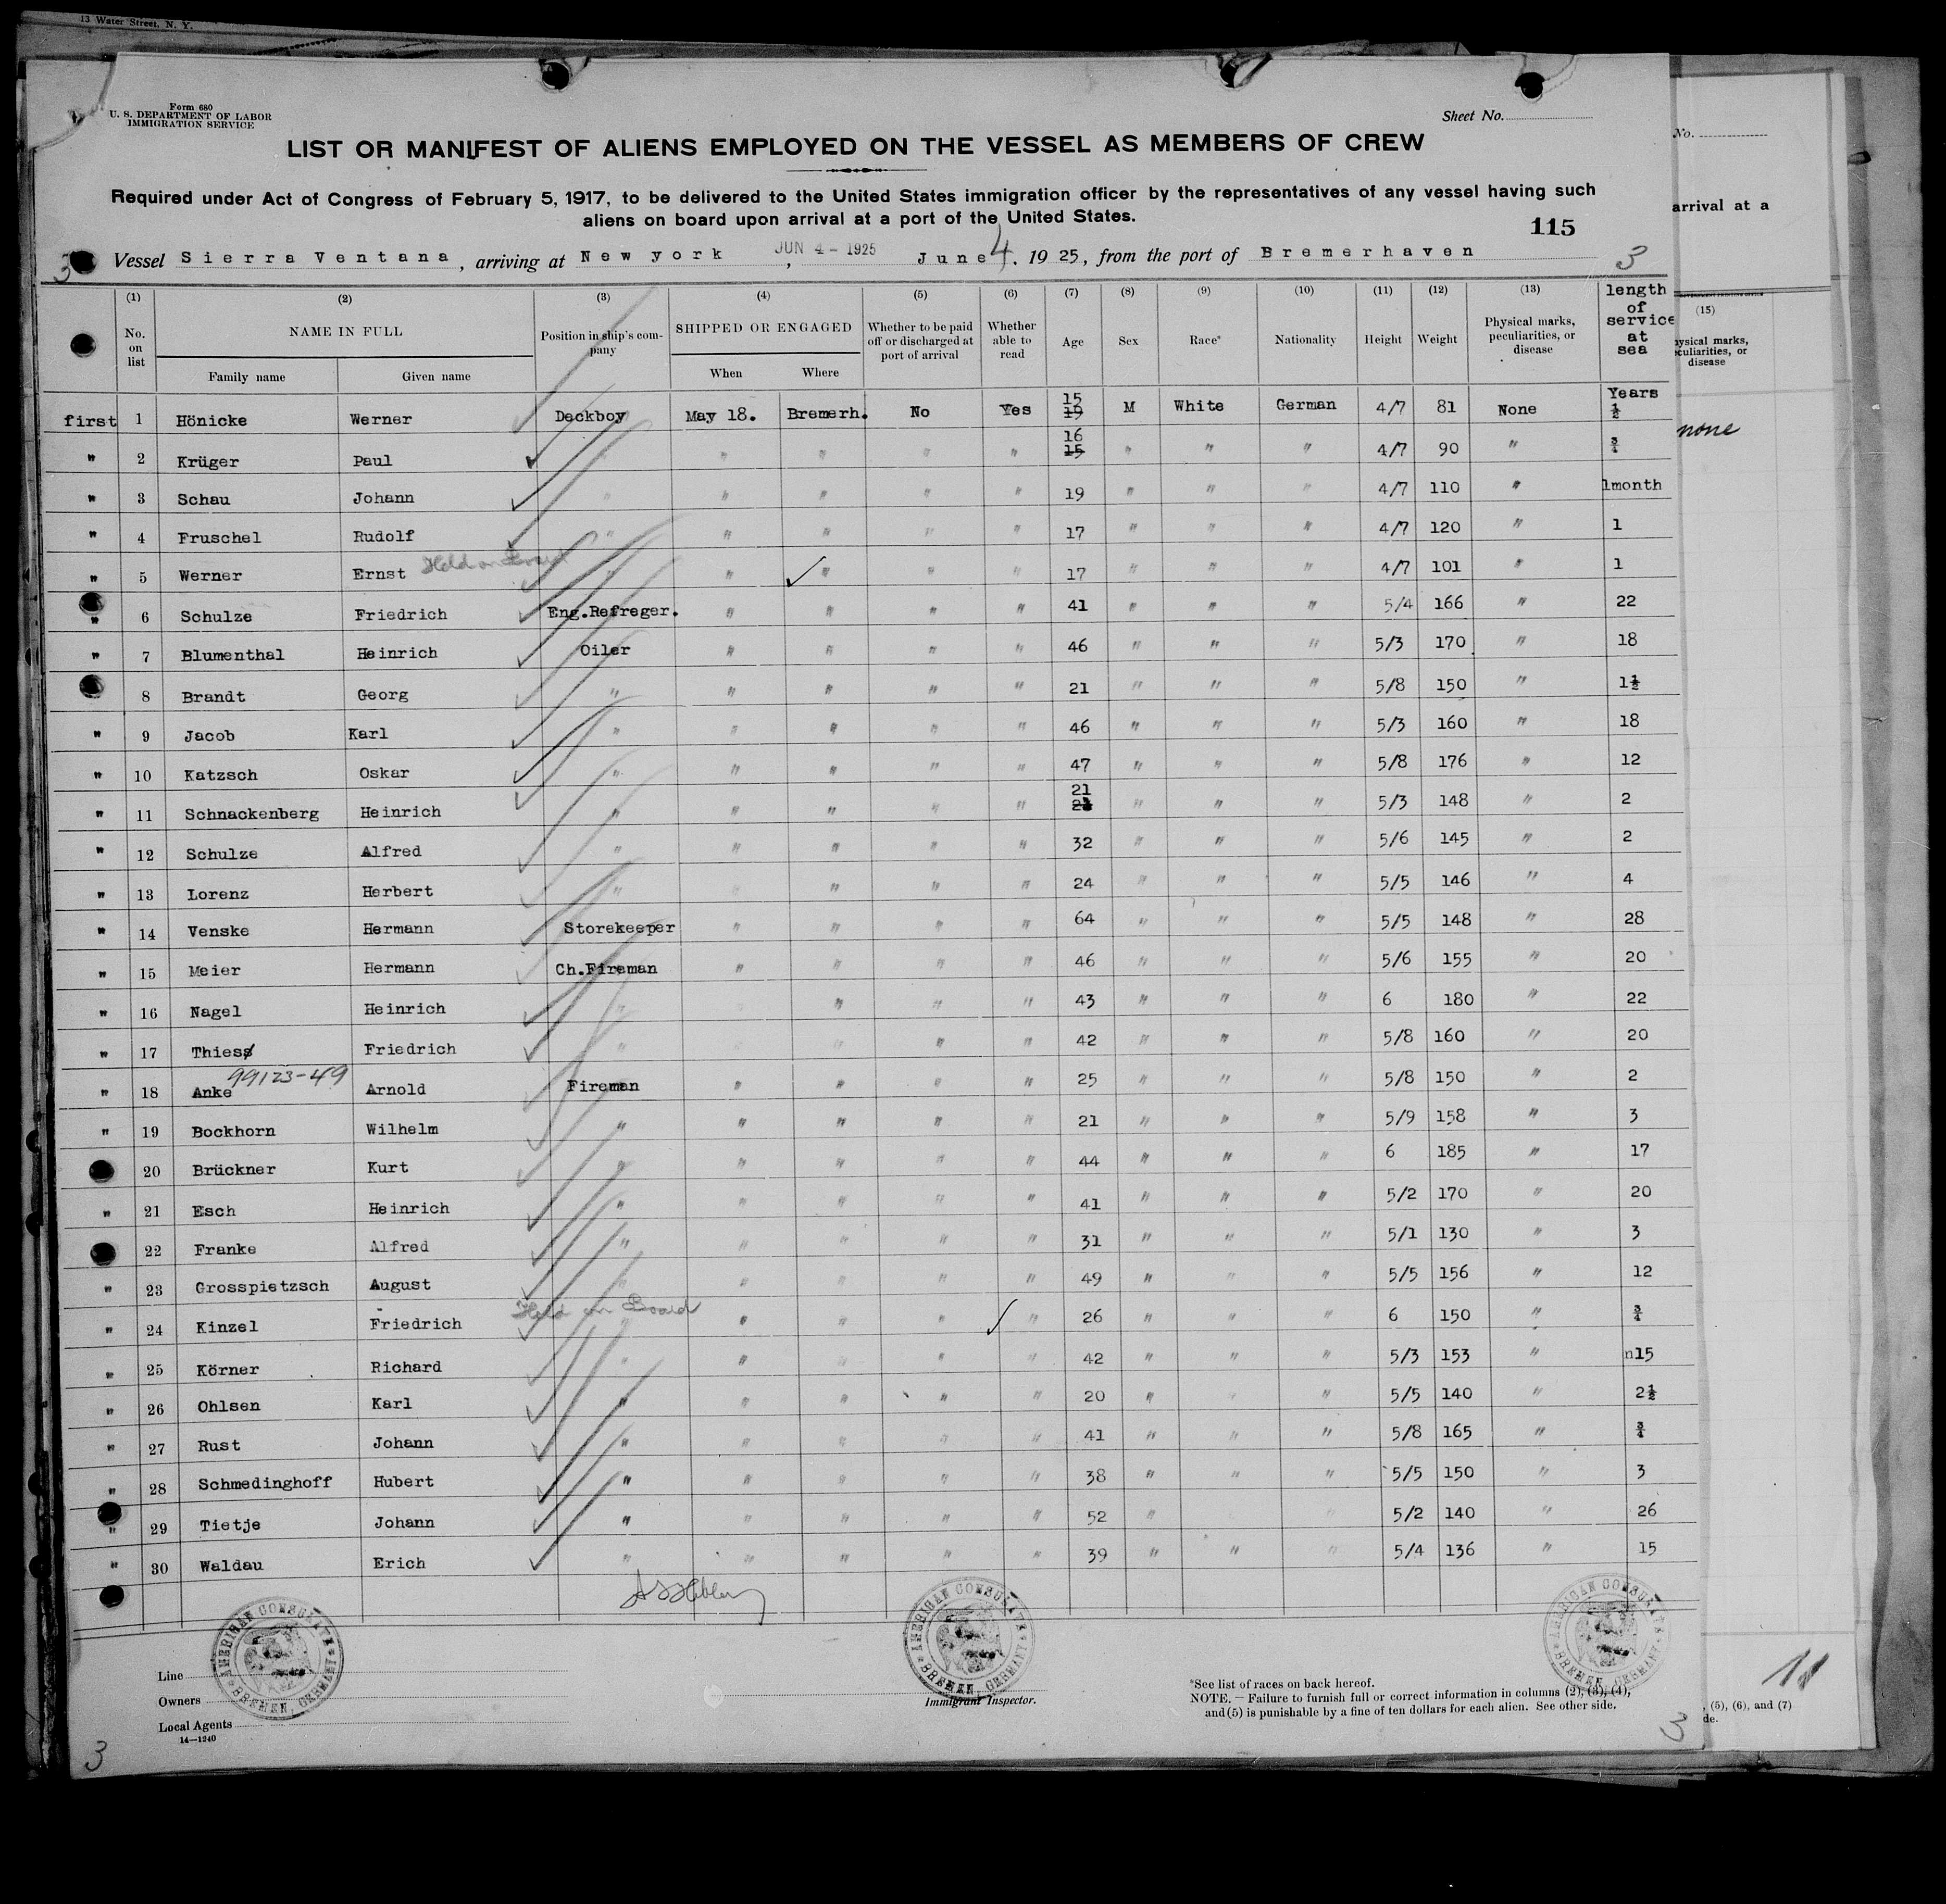 13 Water Street, N. Y.
Form 680
U. S. DEPARTMENT OF LABOR
IMMIGRATION SERVICE
Sheet No.
No.
LIST OR MANIFEST OF ALIENS EMPLOYED ON THE VESSEL AS MEMBERS OF CREW
Required under Act of Congress of February 5, 1917, to be delivered to the United States immigration officer by the representatives of any vessel having such
aliens on board upon arrival at a port of the United States.
arrival at a
115
3 Vessel Sierra Ventana, arriving at New york JUN 4 - 1925, June 4, 1925, from the port of Bremerhaven 3
(1) (2) (3) (4) (5) (6) (7) (8) (9) (10) (11) (12) (13) length of service at sea
No. on list NAME IN FULL Position in ship's company SHIPPED OR ENGAGED Whether to be paid off or discharged at port of arrival Whether able to read Age Sex Race* Nationality Height Weight Physical marks, peculiarities, or disease
Family name Given name When Where
(15)
ysical marks,
culiarities, or
disease
none
Years
first 1 Hönicke Werner Deckboy May 18. Bremerh. No Yes 15 15 M White German 4/7 81 None ½
" 2 Krüger Paul " " " " " 16 15 " " " 4/7 90 " ¾
" 3 Schau Johann " " " " " 19 " " " 4/7 110 " 1month
" 4 Fruschel Rudolf " " " " " 17 " " " 4/7 120 " 1
Held on Board
" 5 Werner Ernst " " " " " 17 " " " 4/7 101 " 1
" 6 Schulze Friedrich Eng.Refreger. " " " " 41 " " " 5/4 166 " 22
" 7 Blumenthal Heinrich Oiler " " " " 46 " " " 5/3 170 " 18
8 Brandt Georg " " " " " 21 " " " 5/8 150 " 1½
" 9 Jacob Karl " " " " " 46 " " " 5/3 160 " 18
" 10 Katzsch Oskar " " " " " 47 " " " 5/8 176 " 12
" 11 Schnackenberg Heinrich " " " " " 21 " " " 5/3 148 " 2
" 12 Schulze Alfred " " " " " 32 " " " 5/6 145 " 2
" 13 Lorenz Herbert " " " " " 24 " " " 5/5 146 " 4
" 14 Venske Hermann Storekeeper " " " " 64 " " " 5/5 148 " 28
" 15 Meier Hermann Ch.Fireman " " " " 46 " " " 5/6 155 " 20
" 16 Nagel Heinrich " " " " 43 " " " 6 180 " 22
" 17 Thiess Friedrich " " " " 42 " " " 5/8 160 " 20
99123-49
" 18 Anke Arnold Fireman " " " " 25 " " " 5/8 150 " 2
" 19 Bockhorn Wilhelm " " " " " 21 " " " 5/9 158 " 3
20 Brückner Kurt " " " " " 44 " " " 6 185 " 17
" 21 Esch Heinrich " " " " " 41 " " " 5/2 170 " 20
22 Franke Alfred " " " " " 31 " " " 5/1 130 " 3
" 23 Grosspietzsch August " " " " " 49 " " " 5/5 156 " 12
Held on Board
" 24 Kinzel Friedrich " " " " " 26 " " " 6 150 " ¾
" 25 Körner Richard " " " " " 42 " " " 5/3 153 " n15
" 26 Ohlsen Karl " " " " " 20 " " " 5/5 140 " 2½
" 27 Rust Johann " " " " " 41 " " " 5/8 165 " ¾
" 28 Schmedinghoff Hubert " " " " " 38 " " " 5/5 150 " 3
" 29 Tietje Johann " " " " " 52 " 5/2 140 " 26
" 30 Waldau Erich " " " " " 39 " " " 5/4 136 " 15
AMERICAN CONSULATE BREMEN, GERMANY
AMERICAN CONSULATE BREMEN, GERMANY
AMERICAN CONSULATE BREMEN, GERMANY
Line
Owners
Local Agents
14—1240
Immigrant Inspector.
*See list of races on back hereof.
NOTE. — Failure to furnish full or correct information in columns (2), (3), (4),
and (5) is punishable by a fine of ten dollars for each alien. See other side.
, (5), (6), and (7)
de.
3
3